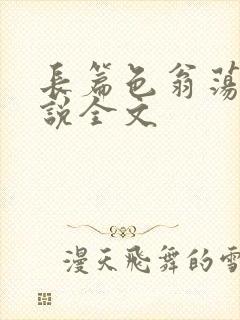 長篇色翁蕩
說全文
漫天飛舞的雪